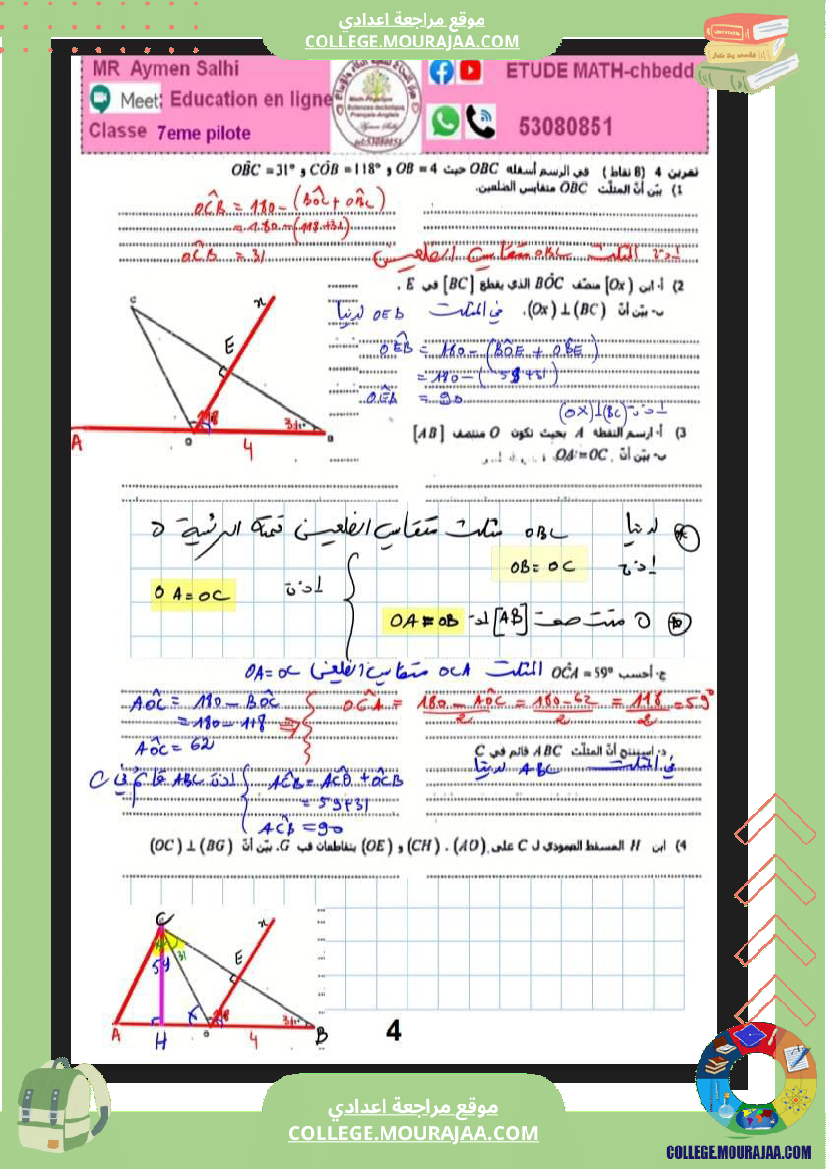 موقع مراجعة اعدادي
COLLEGE.MOURAJAA.COM
MR Aymen Salhi
ETUDE MATH-chbedd
Meet: Education en ligne
Classe 7eme pilote
53080851
تمرين 4 (8 نقاط) في الرسم أسفله OBC حيث OB = 4 و CÔB = 118° و OB̂C = 31°
1) بيّن أنّ المثلّث OBC متقايس الضلعين.
OĈB = 180 - (BÔC + OB̂C)
= 180 - (118+31)
OĈB = 31
إذن المثلث OBC متقايس الضلعين
2) أ- ابن [Ox) منصّف BÔC الذي يقطع [BC] في E .
ب- بيّن أنّ (Ox) ⊥ (BC).
في المثلث OEB لدينا
OÊB = 180 - (BÔE + OB̂E)
= 180 - (59+31)
OÊB = 90
إذن (Ox)⊥(BC)
C
x
E
118
31°
A
O
4
B
3) أ- ارسم النقطة A بحيث تكون O منتصف [AB]
ب- بيّن أنّ OA = OC
لدينا OBC مثلث متقايس الضلعين قمته الرئيسية O
إذن OB = OC
O منتصف [AB] إذن OA = OB
إذن OA = OC
ج- أحسب OĈA = 59°
المثلث OCA متقايس الضلعين OA = OC
AÔC = 180 - BÔC
= 180 - 118
AÔC = 62
OĈA = 180 - AÔC / 2 = 180-62 / 2 = 118 / 2 = 59°
د- استنتج أنّ المثلّث ABC قائم في C
في المثلث ABC لدينا
AĈB = AĈO + OĈB
= 59+31
AĈB = 90
إذن ABC قائم في C
4) ابن H المسقط العمودي لـ C على (AO) . (CH) و (OE) يتقاطعان في G. بيّن أنّ (OC) ⊥ (BG)
C
x
59
31
E
118
31°
A
H
O
4
B
4
موقع مراجعة اعدادي
COLLEGE.MOURAJAA.COM
COLLEGE.MOURAJAA.COM